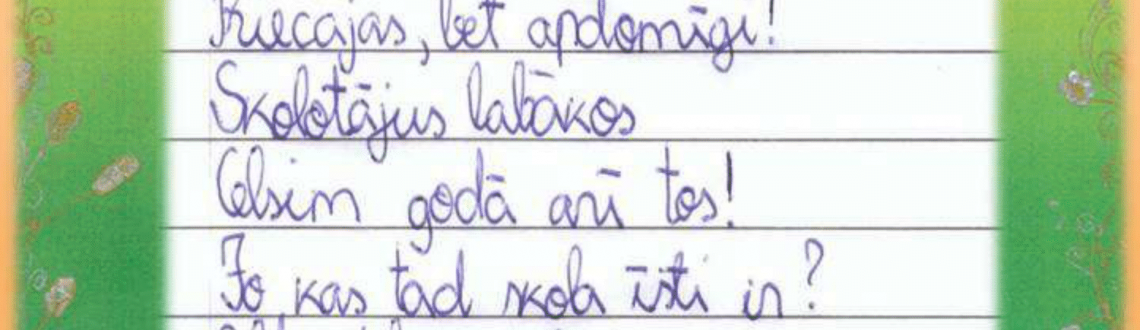 bet apdomīgi!
Skolotājus labākos
Celsim godā arī tos!
Jo kas tad skola īsti ir?